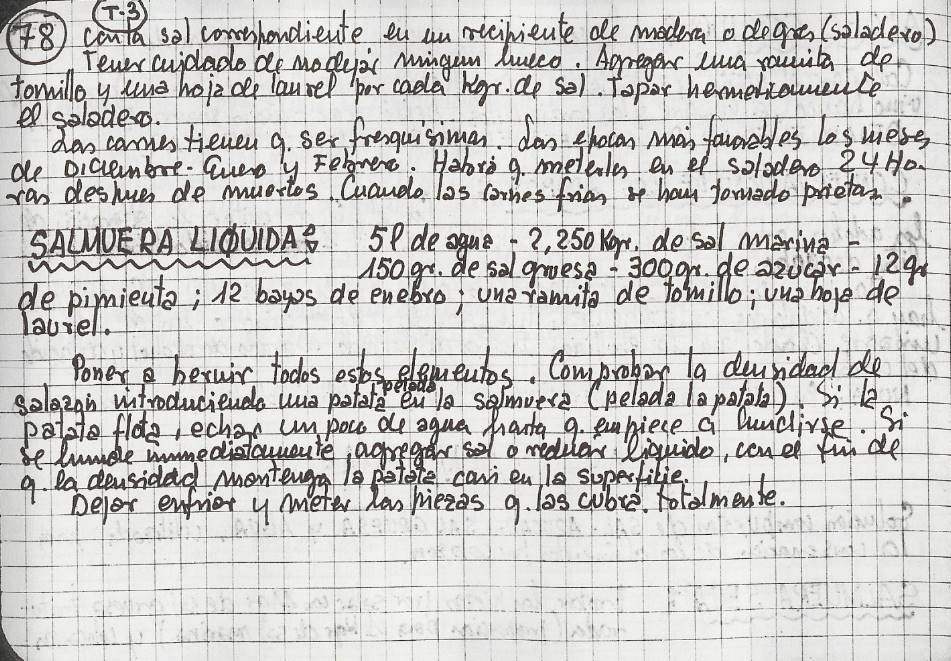 T-3
78 con la sal correspondiente en un recipiente de madera o de gres (saladero)
Tener cuidado de no dejar ningun hueco. Agregar una ramita de
tomillo y una hoja de laurel por cada Kgr. de sal. Tapar hermeticamente
el saladero.
Las carnes tienen q. ser fresquisimas. Las epocas mas favorables los meses
de Diciembre - Enero y Febrero. Habrá q. meterlas en el saladero 24 Ho-
ras despues de muertos. Cuando las carnes frias se han tornado prietas.
SALMUERA LIQUIDA: 5l de agua - 2,250 Kgr. de sal marina -
150 gr. de sal gruesa - 300 gr. de azúcar - 12 gr
de pimienta; 12 bayas de enebro; una ramita de tomillo; una hoja de
laurel.
Poner a hervir todos estos elementos. Comprobar la densidad de
salazon introduciendo una patata pelada en la salmuera (pelada la patata). Si la
patata flota, echar un poco de agua hasta q. empiece a hundirse. Si
se hunde inmediatamente, agregar sal o reducir liquido, con el fin de
q. la densidad mantenga la patata casi en la superficie.
Dejar enfriar y meter las piezas q. las cubra totalmente.